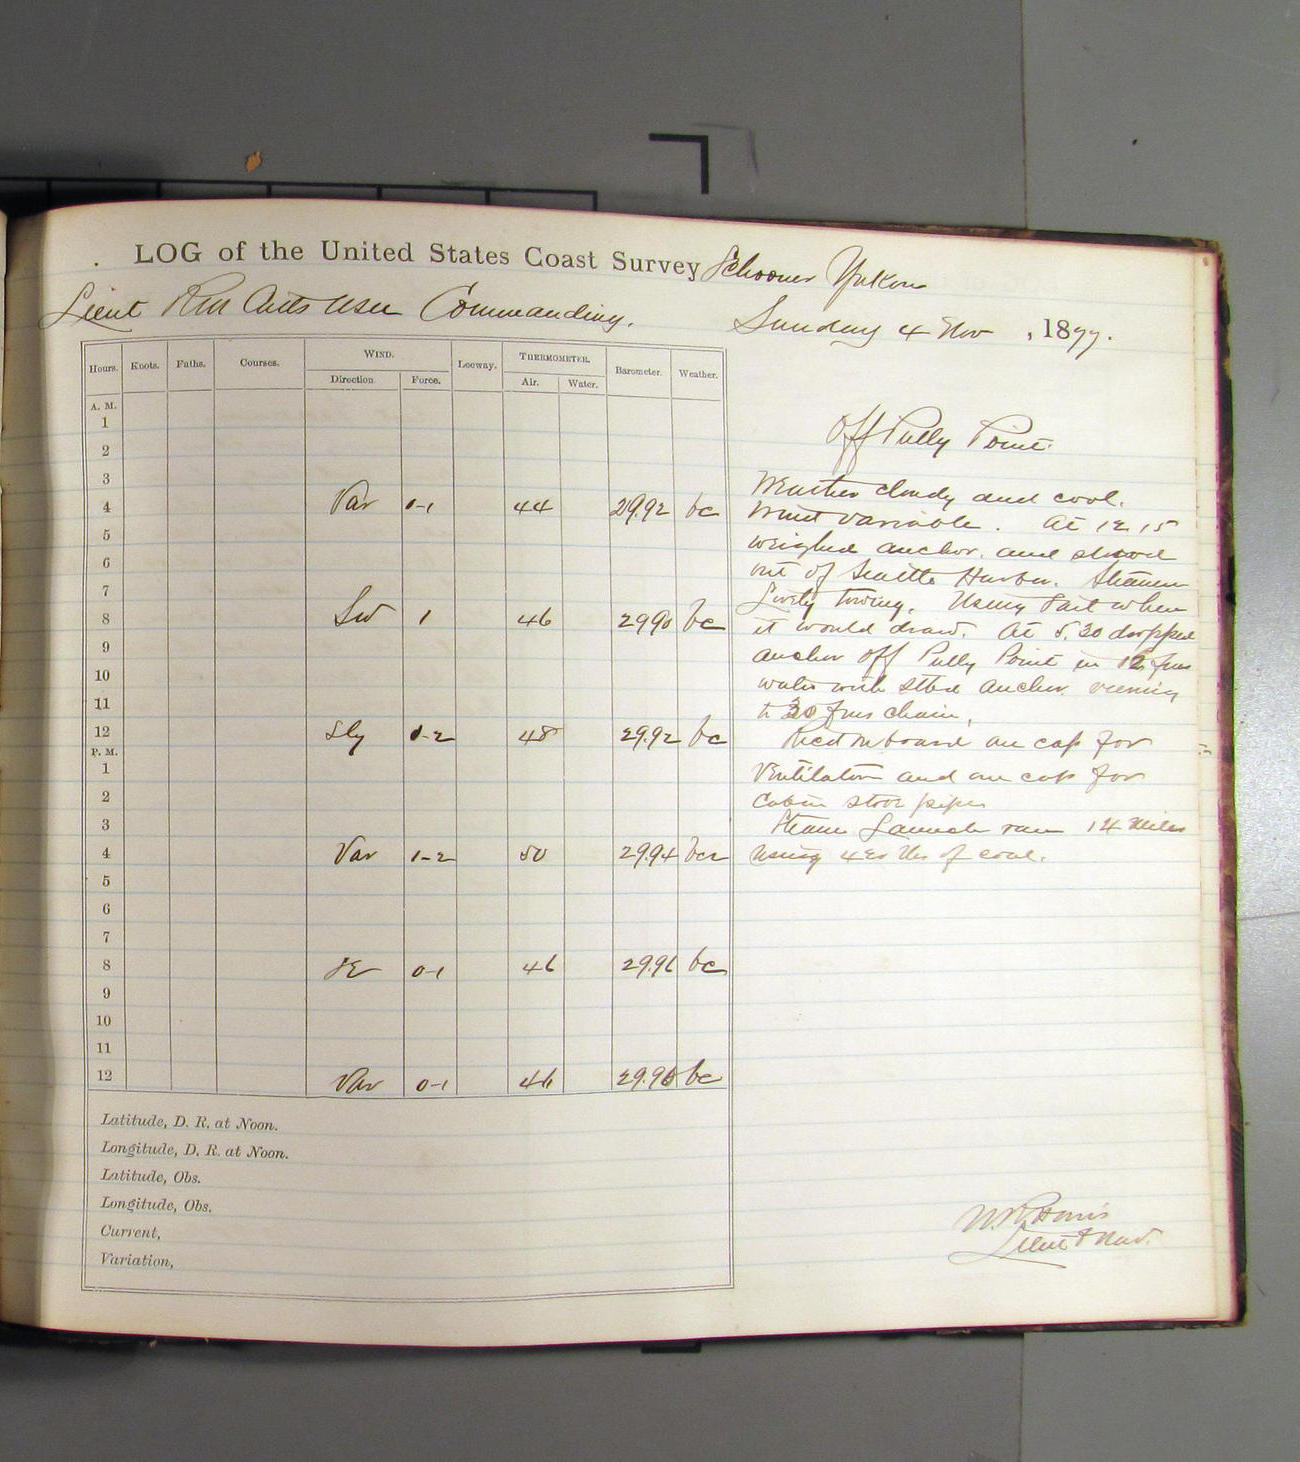 LOG of the United States Coast Survey Schooner Yukon
Lieut Commanding.
Sunday 4 Nov , 1877.
Hours. Knots. Faths. Courses. WIND. Leeway. THERMOMETER. Barometer. Weather.
Direction. Force. Air. Water.
A. M.
1
2
3
4 Var 0-1 44 29.92 bc
5
6
7
8 SW 1 46 2990 bc
9
10
11
12 Sly 0-2 48 29.92 bc
P. M.
1
2
3
4 Var 1-2 50 29.94
5
6
7
8 SE 0-1 46 29.96 bc
9
10
11
12 Var 0-1 46 29.96 bc
Latitude, D. R. at Noon.
Longitude, D. R. at Noon.
Latitude, Obs.
Longitude, Obs.
Current,
Variation,
Off Pully Point.
Weather cloudy and cool.
Wind variable. At 12 15
weighed anchor. and stood
out of Seattle Harbor. Steamer
Lively towing. Using sail when
it would draw. At 5.30 dropped
anchor off Pully Point in 12 fms
water with stbd anchor veering
to 30 fms chain.
Recd on board one cap for
Ventilator and one cap for
Cabin stove pipe
Steam Launch ran 14 miles
using lbs of coal.
Harris
Lieut & Nav.